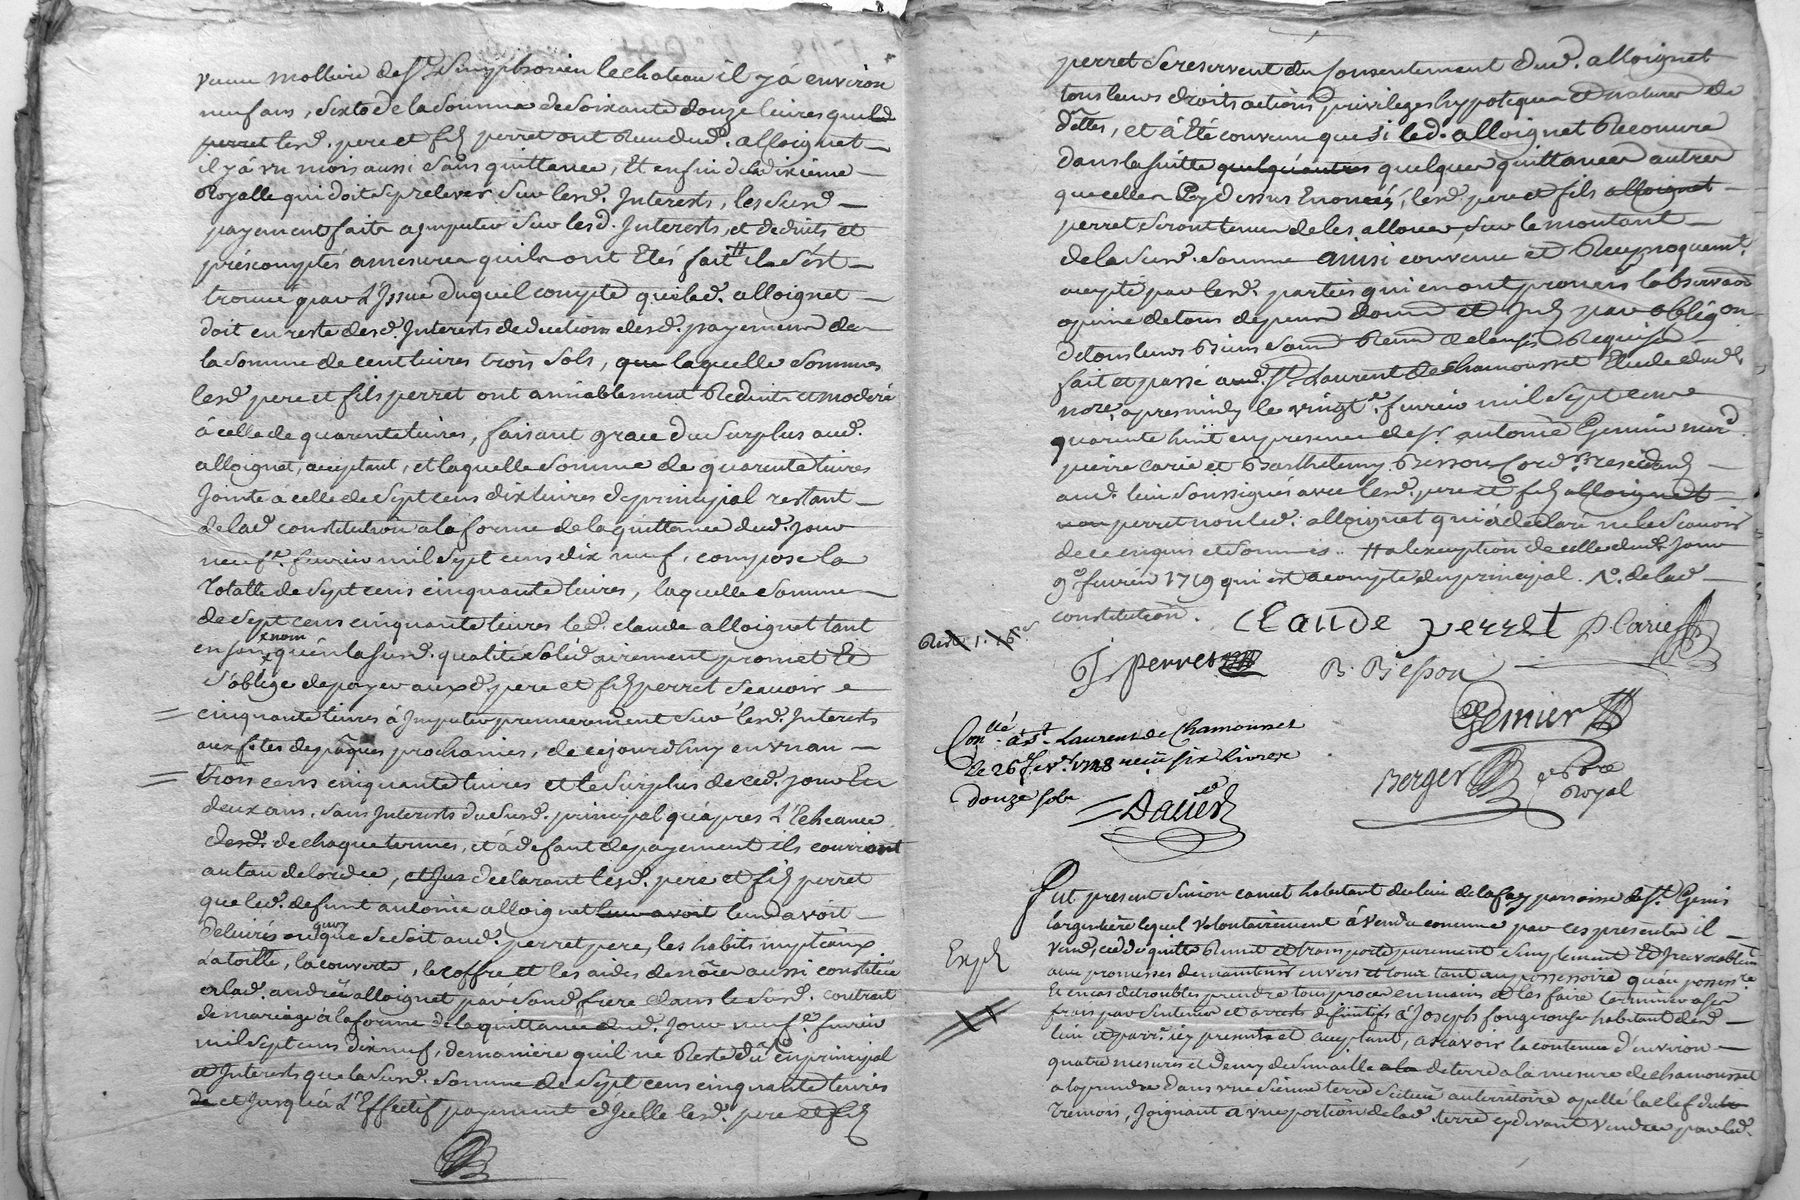 veuve molliere de st simphorien le chateau il y á environ
neuf ans, sixte de la somme de soixante douze livres que led
perret lesd. pere et fils perret ont reçu dud. alloignet
il y á un mois aussi sans quittance, Et enfin du dixieme
Royalle qui doit se prelever sur lesd. Interests, les susd
payement faits a jmputer sur lesd. Interests, et deduits et
préscomptés a mesure quils ont Etés fait # il s'est
trouvé que par l'Jssue duquel compte que led. alloignet
doit en reste desd. Interests deduction desd. payements de
la somme de cent livres trois sols, que laquelle somme
lesd pere et fils perret ont amiablement Reduit et moderé
á celle de quarente livres, faisant grace du surplus aud.
alloignet, acceptant, et laquelle somme de quarente livres
Jointe á celle de sept cens dix livres de principal restant
de lad constitution a la forme de la quittance dud. jour
neufe. fevrier mil sept cens dix neuf, compose la
totalle de sept cens cinquante livres, laquelle somme
de sept cens cinquante livres led. claude alloignet tant
en son nom qu'en la susd. qualité solidairement promet Et
s'oblige de payer auxd. pere et fils perret scavoir
cinquante livres á Jmputer premierement sur lesd. Interests
aux fetes de pâques prochaines, de cejourdhuy en un an
trois cens cinquante livres et le surplus de ced. jour En
deux ans, sans Interests du susd. principal qu'apres l'Echeance
desd. de chaque termes, et á defaut de payement ils couriront
au tau de lordce, et Jus declarant lesd. pere et fils perret
que led. defunt antoine alloignet leur avoit leur avoit
delivrés ou que ce soit aud. perret pere, les habits nuptiaux
la toille, la couverte, le coffre et les aides de nôces aussi constitué
a lad. andrée alloignet par sond frere dans le susd. contrat
de mariage á la forme de la quittance dud. jour neufe. fevrier
mil sept cens dix neuf, de maniere qu'il ne Reste dû en principal
et Interests que la susd. somme de sept cens cinquante livres
de et Jusqu'á l'Effectif payement d'Jcelle lesd. pere et fils
perret se reservent du consentement dud. alloignet
tous leurs droits actions, privileges hypoteques et natures de
dettes, et á Eté convenu que si led. alloignet Recouvre
dans la suitte quelqu'autres quelques quittances autres
que celles Cy dessus Enoncés, lesd. pere et fils alloignet
perret seront tenus de les allouer, sur le montant
de la susd. somme ainsi convenu et Reciproquemt.
accepté par lesd. parties qui en ont promis l'observaon
a peine de tous depens dom et Jnts par obligaon
de tous leurs Biens
fait et passé aud. St Laurent de chamousset Etude dud.
nore, apres midy le vingte. fevrier mil sept cens
quarente huit en presence de sr. antoine Gemier mard
pierre carie et Barthelemy Besson Cordr. residents
aud. lieu soussignés avec lesd. pere et fils alloignet
non perret non led. alloignet qui á declaré ne le scavoir
de ce enquis et sommés .. # a l'exception de celle dud. jour
9e. fevrier 1719 qui est acompte du principal. de lad
constitution.
Claude perret P Carie
Reste
J perret B. Besson
Gemier
Conllé á St. Laurent de Chamousset
le 26 fevr. 1748 reçu six livres
douze sols
Berger nore
Royal
Fut present simon camet habitant du lieu de la fay parroisse de st. Genis
largentiere lequel volontairement á vendu comme par ces presentes il
Exp
vend, cede quitte Remet et transporte purement simplement Et Jrevocablemt
aux promesses de maintenir envers et contre tous tant au possessoire qu'au
Et en cas de troubles prendre tous proces en mains et les faire terminer a ses
frais par sentences et arrests definitifs á Joseph fougerouse habitant desd
lieu et parr. icy present et acceptant, ascavoir la contenue d'environ
quatre mesures et demy de semaille a la de terre a la mesure de chamousset
a la prendre dans une sienne terre scituée au territoire apellé la clef du
tremois, Joignant á une portion de lad. terre cy devant vendue par led.